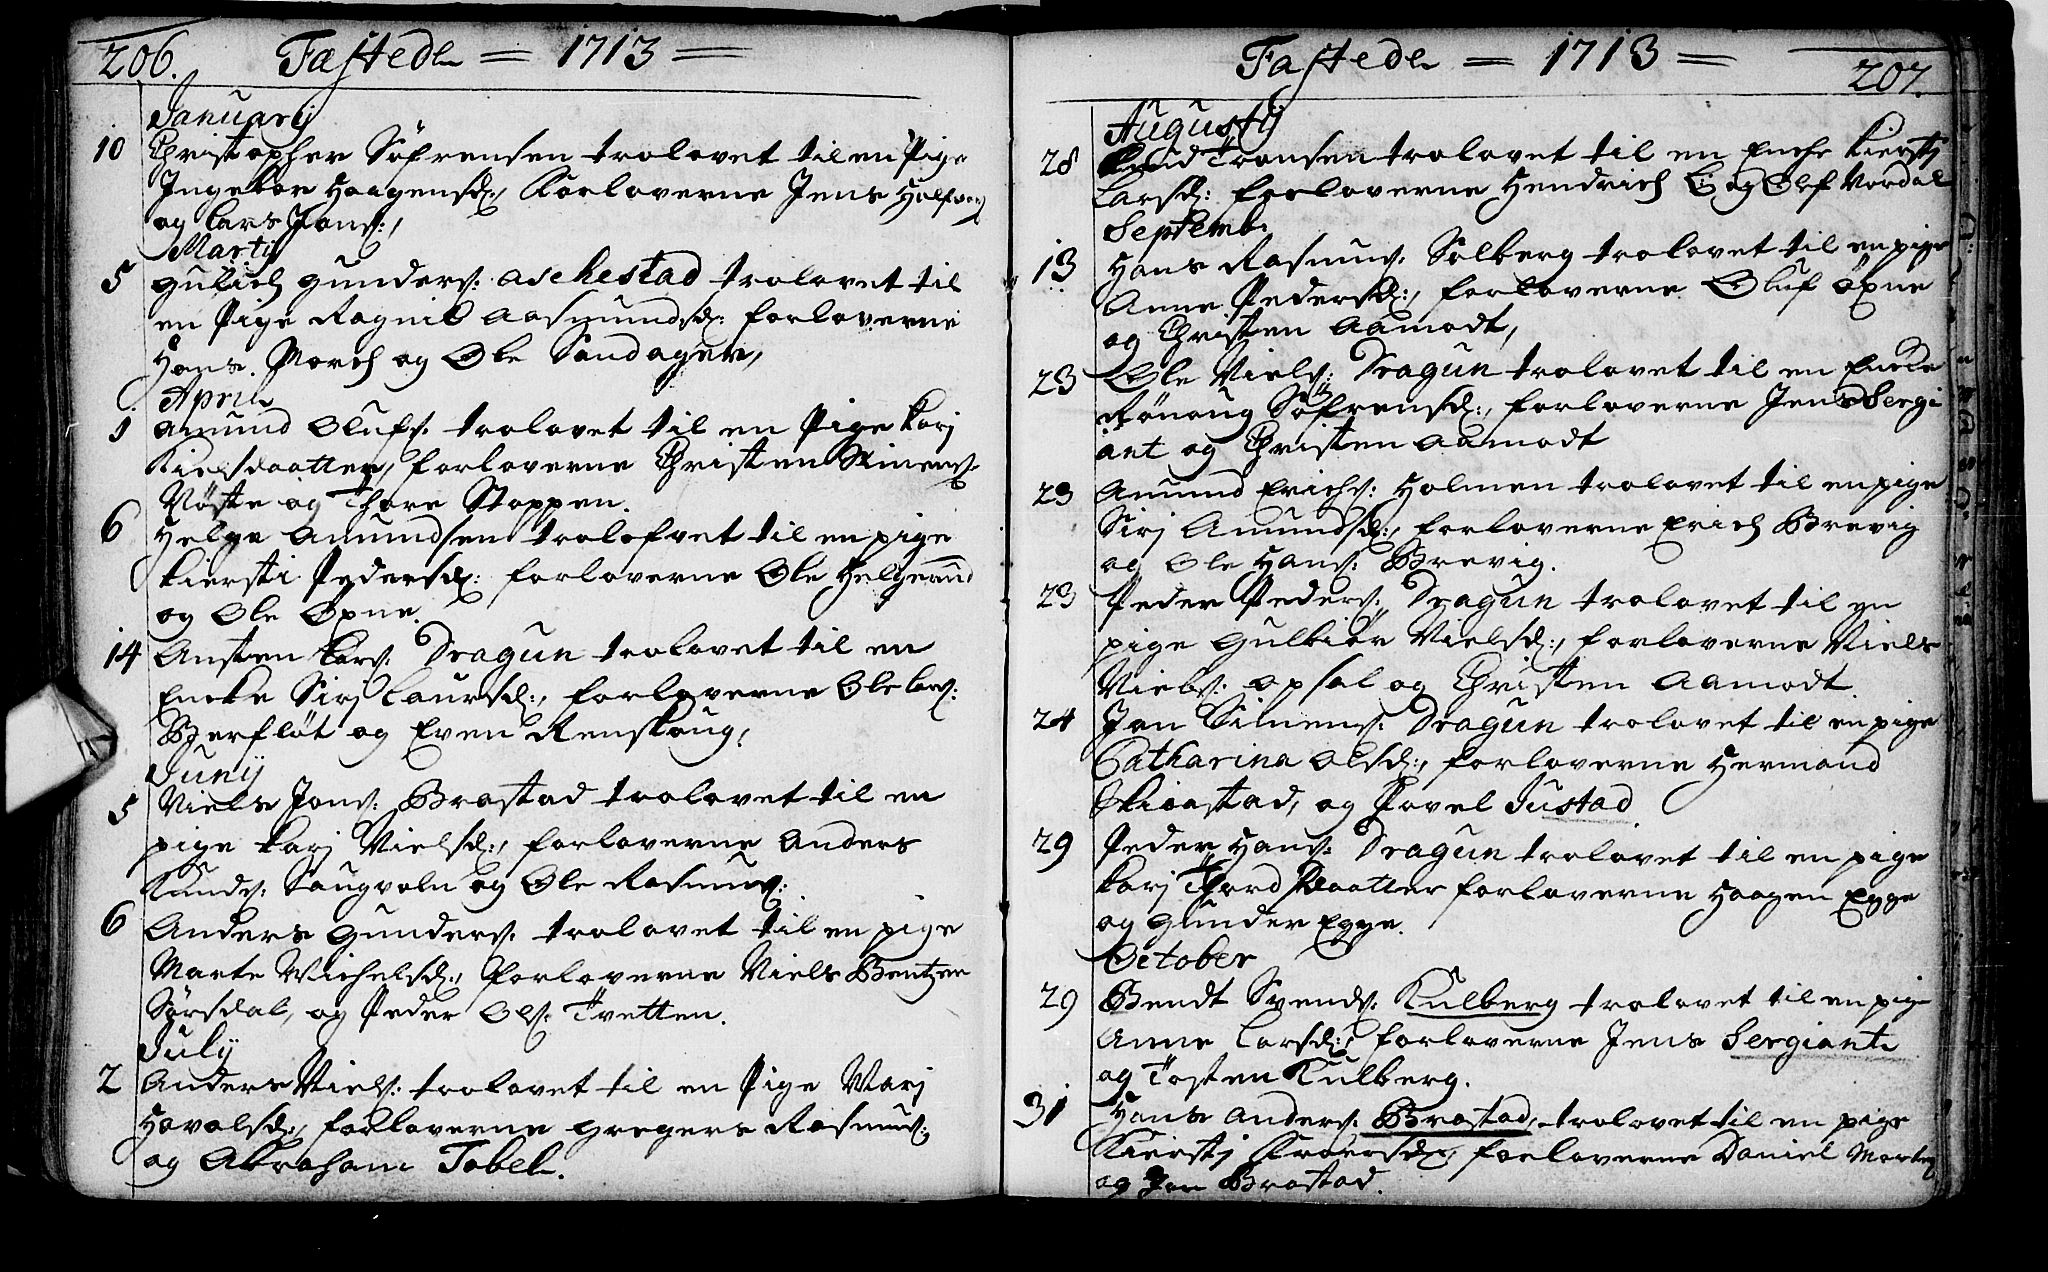 206. Fæstede = 1713 =
Januarij
10 Christopher Söfrensen trolovet til en Pige
Ingebor Haagensd:, Forloverne Jens
og Lars Jons:,
Martij
5 Gulich Gunders: Aschestad trolovet til
en Pige Ragnil Aasmundsd: forloverne
Hans Morch og Ole Sandager,
April
1 Amund Olufs: trolovet til en Pige Karj
Kielsdaatter, forloverne Christen Simens:
Nöste og Thore Stoppen.
6 Helge Amundsen trolofvet til en pige
Kiersti Pedersd: forloverne Ole Helgerud
og Ole Opne.
14 Ansten Lars: Dragun trolovet til en
Encke Sirj Laursd:, forloverne Ole Lars:
Berflöt og Even Renskoug,
Junij
5 Niels Jons: Brastad trolovet til en
pige Karj Nielsd:, forloverne Anders
Knuds: Haugvaln og Ole Rasmus:
6 Anders Gunders: trolovet til en pige
Marte Michelsd:, forloverne Niels Bentzen
Sörsdal, og Peder Ols: Tvetten.
July
2 Anders Niels: trolovet til en Pige Marj
Havalsd:, forloverne Gregers Rasmus:
og Abraham Tobel.
Fastede = 1713 = 207.
Augustij
28 Knud Tronsen trolovet til en Encke Kierstj
Larsd: forloverne Hendrich og Olf Nordal
Septemb:
13 Hans Rasmus: Solberg trolovet til en pige
Anne Pedersd:, forloverne Oluf Opne
og Christen Aamodt,
23 Ole Niels: Dragun trolovet til en Encke
Rönoug Söfrensd:, forloverne Jens Sergi
ant og Christen Aamodt
23 Amund Erichs: Holmen trolovet til en pige
Sirj Amundsd:, forloverne Erich Brevig
og Ole Hans: Brevig.
23 Peder Peders: Dragun trolovet til en
pige Gulbiör Nielsd:, forloverne Niels
Niels: Opsal og Christen Aamodt.
24 Jon Simens: Dragun trolovet til en pige
Catharina Olsd:, forloverne Hermand
Skiöstad, og Povel Justad
29 Peder Hans: Dragun trolovet til en pige
Karj Thord Daatter forloverne Haagen Egge
og Gunder Egge.
October
29 Bendt Svends: Kulberg trolovet til en pige
Anne Larsd:, forloverne Jens Sergiant
og Tosten Kulberg.
31 Hans Anders: Brastad, trolovet til en pige
Kierstj forloverne Daniel
og Jon Brastad.